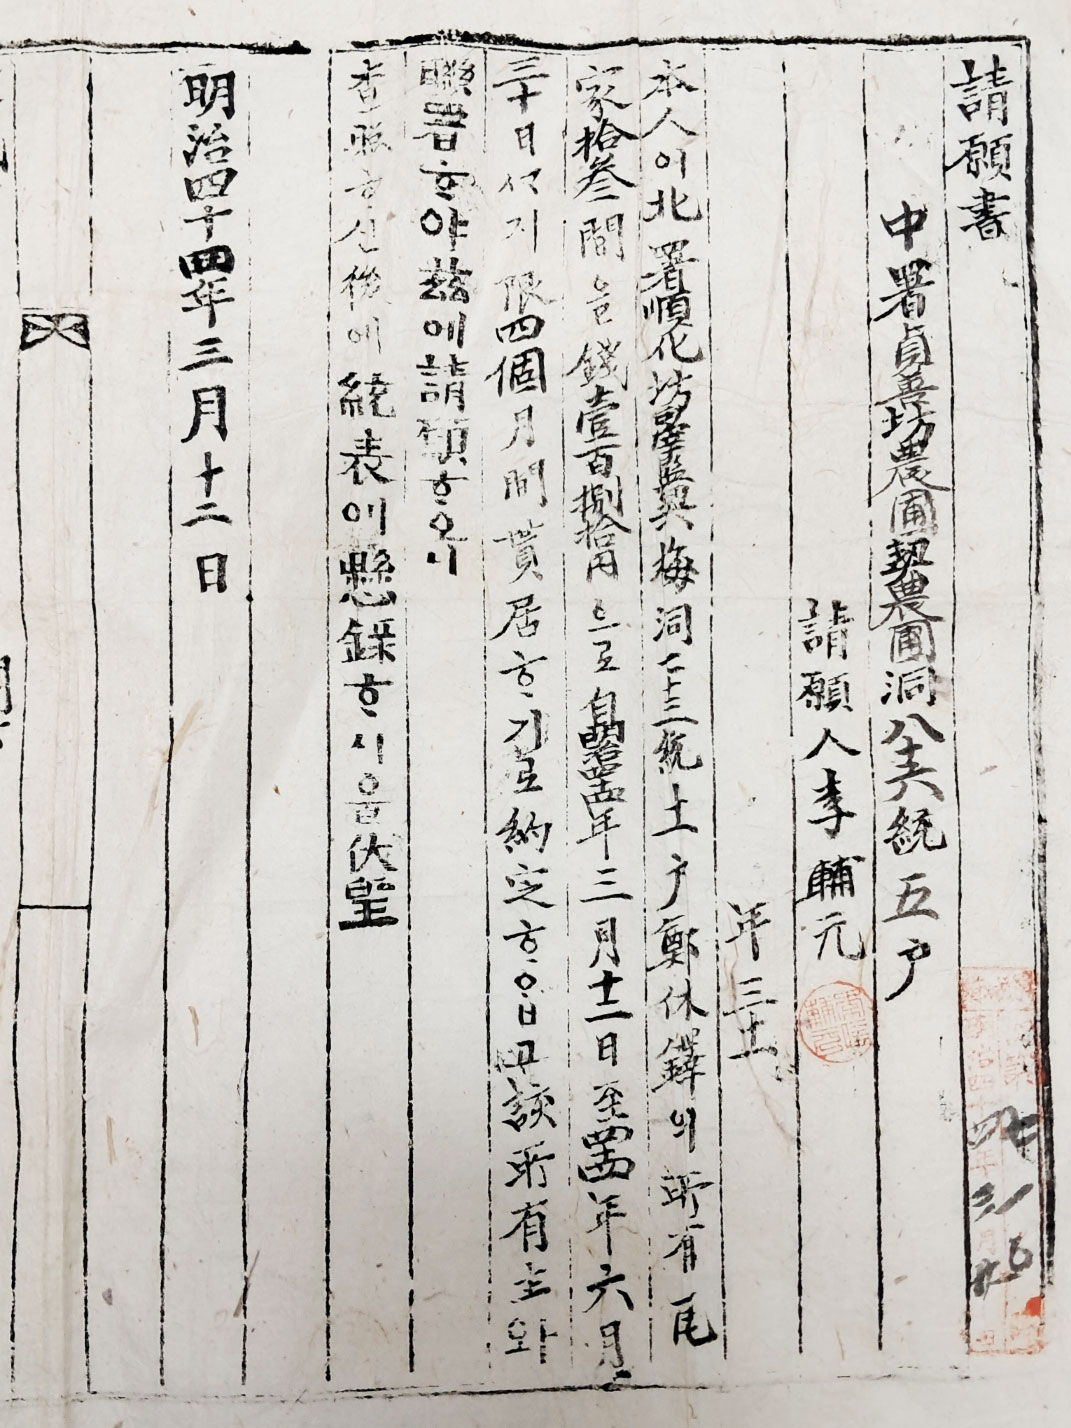 請願書
中署貞善坊農圃契農圃洞八十六統五户
請願人李輔元
年三十
本人이北署順化坊 梅洞二十三統十户鄭休鐸의所有瓦
家拾叄間을錢壹百捌拾円으로自明治四十四年三月十二日至四十四年六月
三十日ᄭᆞ지限四個月間貰居ᄒᆞ기로約定ᄒᆞ읍고該所有主와
聯署ᄒᆞ야玆에請願ᄒᆞ오니
查照ᄒᆞ신後에統表에懸錄ᄒᆞ시을伏望
明治四十四年三月十二日